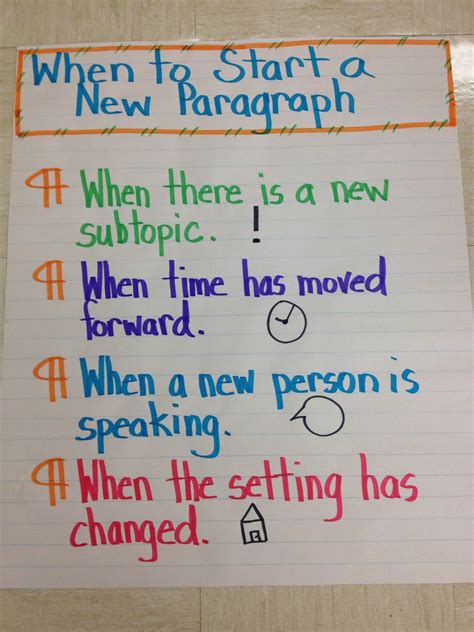 When to Start a
New Paragraph
¶ When there is a new
subtopic. !
¶ When time has moved
forward.
¶ When a new person is
speaking.
¶ When the setting has
changed.